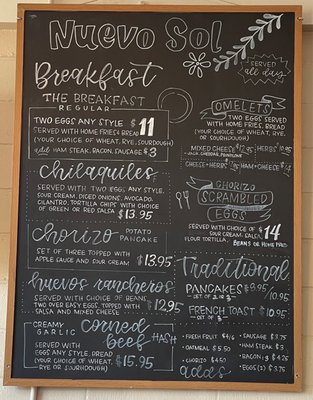 Nuevo Sol
Breakfast
SERVED
all day
THE BREAKFAST
REGULAR
TWO EGGS ANY STYLE $11
SERVED WITH HOME FRIES & BREAD
(YOUR CHOICE OF WHEAT, RYE, SOURDOUGH)
add HAM STEAK, BACON, SAUSAGE $3
chilaquiles
SERVED WITH TWO EGGS ANY STYLE,
SOUR CREAM, DICED ONIONS, AVOCADO,
CILANTRO, TORTILLA CHIPS WITH CHOICE
OF GREEN OR RED SALSA $13.95
chorizo POTATO
PANCAKE
SET OF THREE TOPPED WITH
APPLE SAUCE AND SOUR CREAM $13.95
huevos rancheros
SERVED WITH CHOICE OF BEANS,
TWO OVER EASY EGGS, TOPPED WITH
SALSA AND MIXED CHEESE $12.95
CREAMY
GARLIC corned
beef HASH
SERVED WITH
EGGS ANY STYLE, BREAD
(YOUR CHOICE OF WHEAT, RYE
OR SOURDOUGH) $15.95
OMELETS
TWO EGGS SERVED
WITH HOME FRIES, BREAD
(YOUR CHOICE OF WHEAT, RYE,
OR SOURDOUGH)
MIXED CHEESE HERBS
CHEESE + HERBS HAM + CHEESE
CHORIZO
SCRAMBLED
EGGS
SERVED WITH CHOICE OF
SOUR CREAM, SALSA, $14
FLOUR TORTILLA, BEANS OR HOME FRIES
Traditional
PANCAKES $9.95/10.95
- SET OF 2 OR 3 -
FRENCH TOAST $10.95
- SET OF
• FRESH FRUIT $4/6 • SAUSAGE $3.75
• OATMEAL $5.50 • HAM STEAK $3
• CHORIZO $4.50 • BACON $4.25
adds • EGGS (2) $3.75